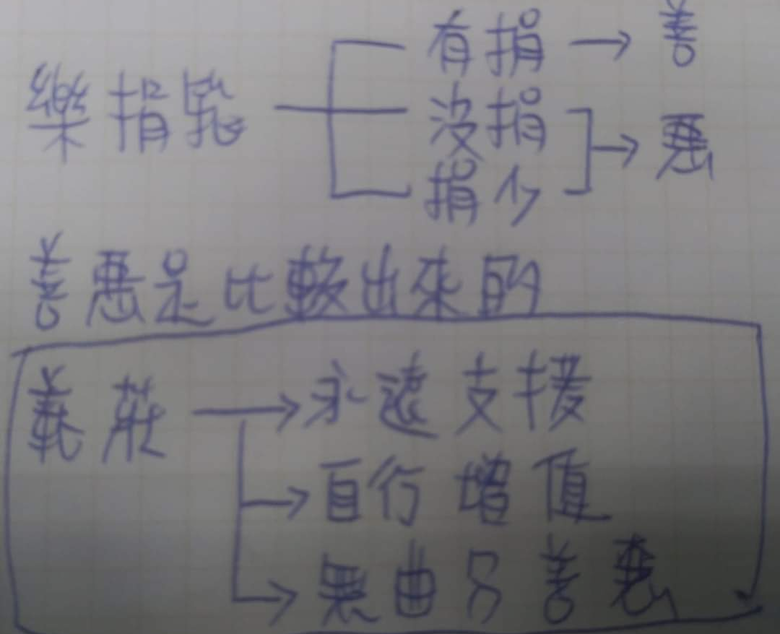 有捐 → 善
樂捐
沒捐
捐少 → 惡
善惡是比較出來的
義莊 → 永遠支援
→ 自行增值
→ 無由分善惡